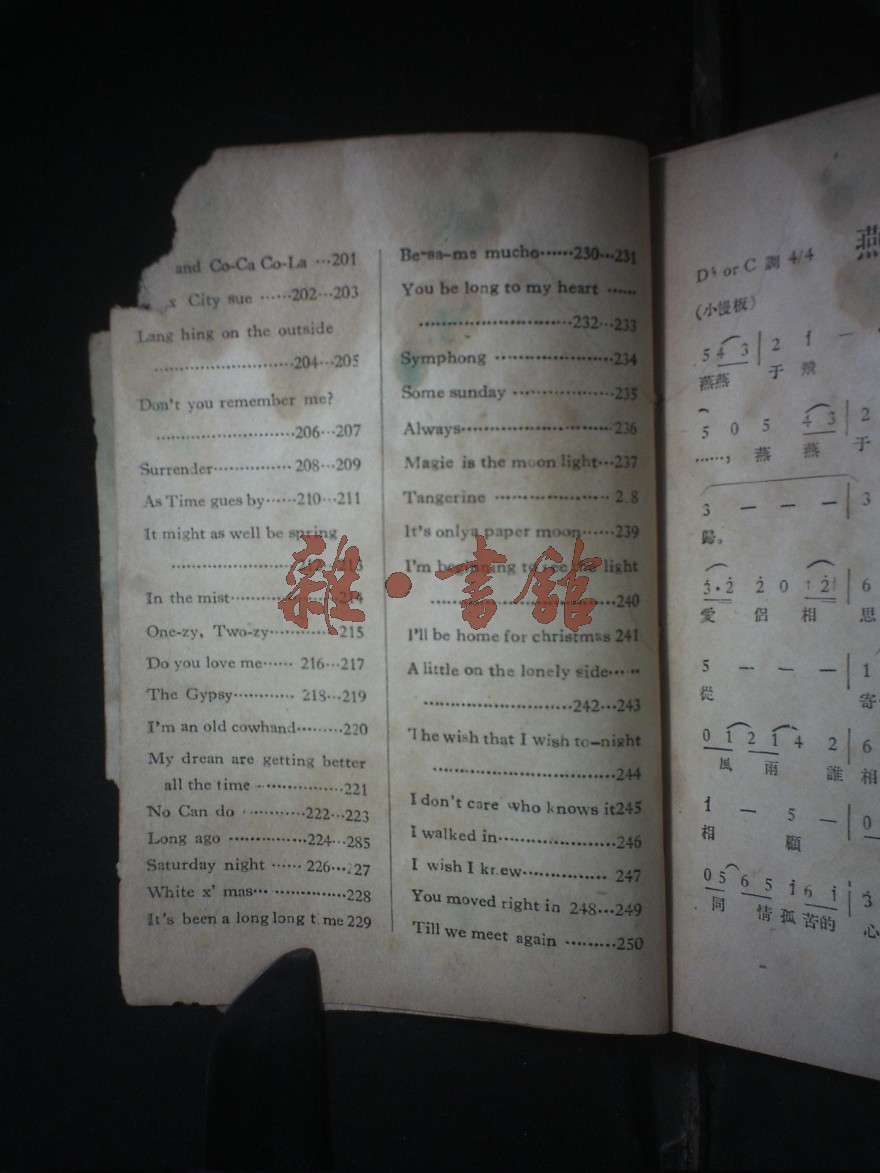 and Co-Ca Co-La ···201
x City sue ······202···203
Lang hing on the outside
························204···205
Don't you remember me?
························206···207
Surrender·············· 208···209
As Time gues by······210···211
It might as well be spring
······················212···213
In the mist···················214
One-zy, Two-zy············215
Do you love me······ 216···217
The Gypsy············ 218···219
I'm an old cowhand·········220
My drean are getting better
all the time ················221
No Can do ············222···223
Long ago ··············224···285
Saturday night ······ 226···227
White x' mas··· ···············228
It's been a long long time 229
Be-sa-me mucho······230···231
You be long to my heart ······
···························232···233
Symphong ·····················234
Some sunday ··················235
Always···························236
Magie is the moon light···237
Tangerine ···················· 2.8
It's onlya paper moon······239
I'm beginning to see the light
································240
I'll be home for christmas 241
A little on the lonely side······
··························242···243
The wish that I wish to-night
································244
I don't care who knows it245
I walked in·····················246
I wish I krew·············· 247
You moved right in 248···249
Till we meet again ·········250
雜·書館
燕
D♮ or C 調 4/4
(小慢板)
5 4 3 | 2 i —
燕燕 于 飛
5 0 5 4 3 | 2
······, 燕 燕 于
3 — — — | 3
歸。
3·2 2 0 i 2i | 6
愛 侶 相 思
5 — — — | 1
從 寄
0 i 2 i 4 2 | 6
風 雨 誰 相
i — 5 | 0
相 顧
0 5 6 5 i 6 i | 3
同 情 孤 苦的 心